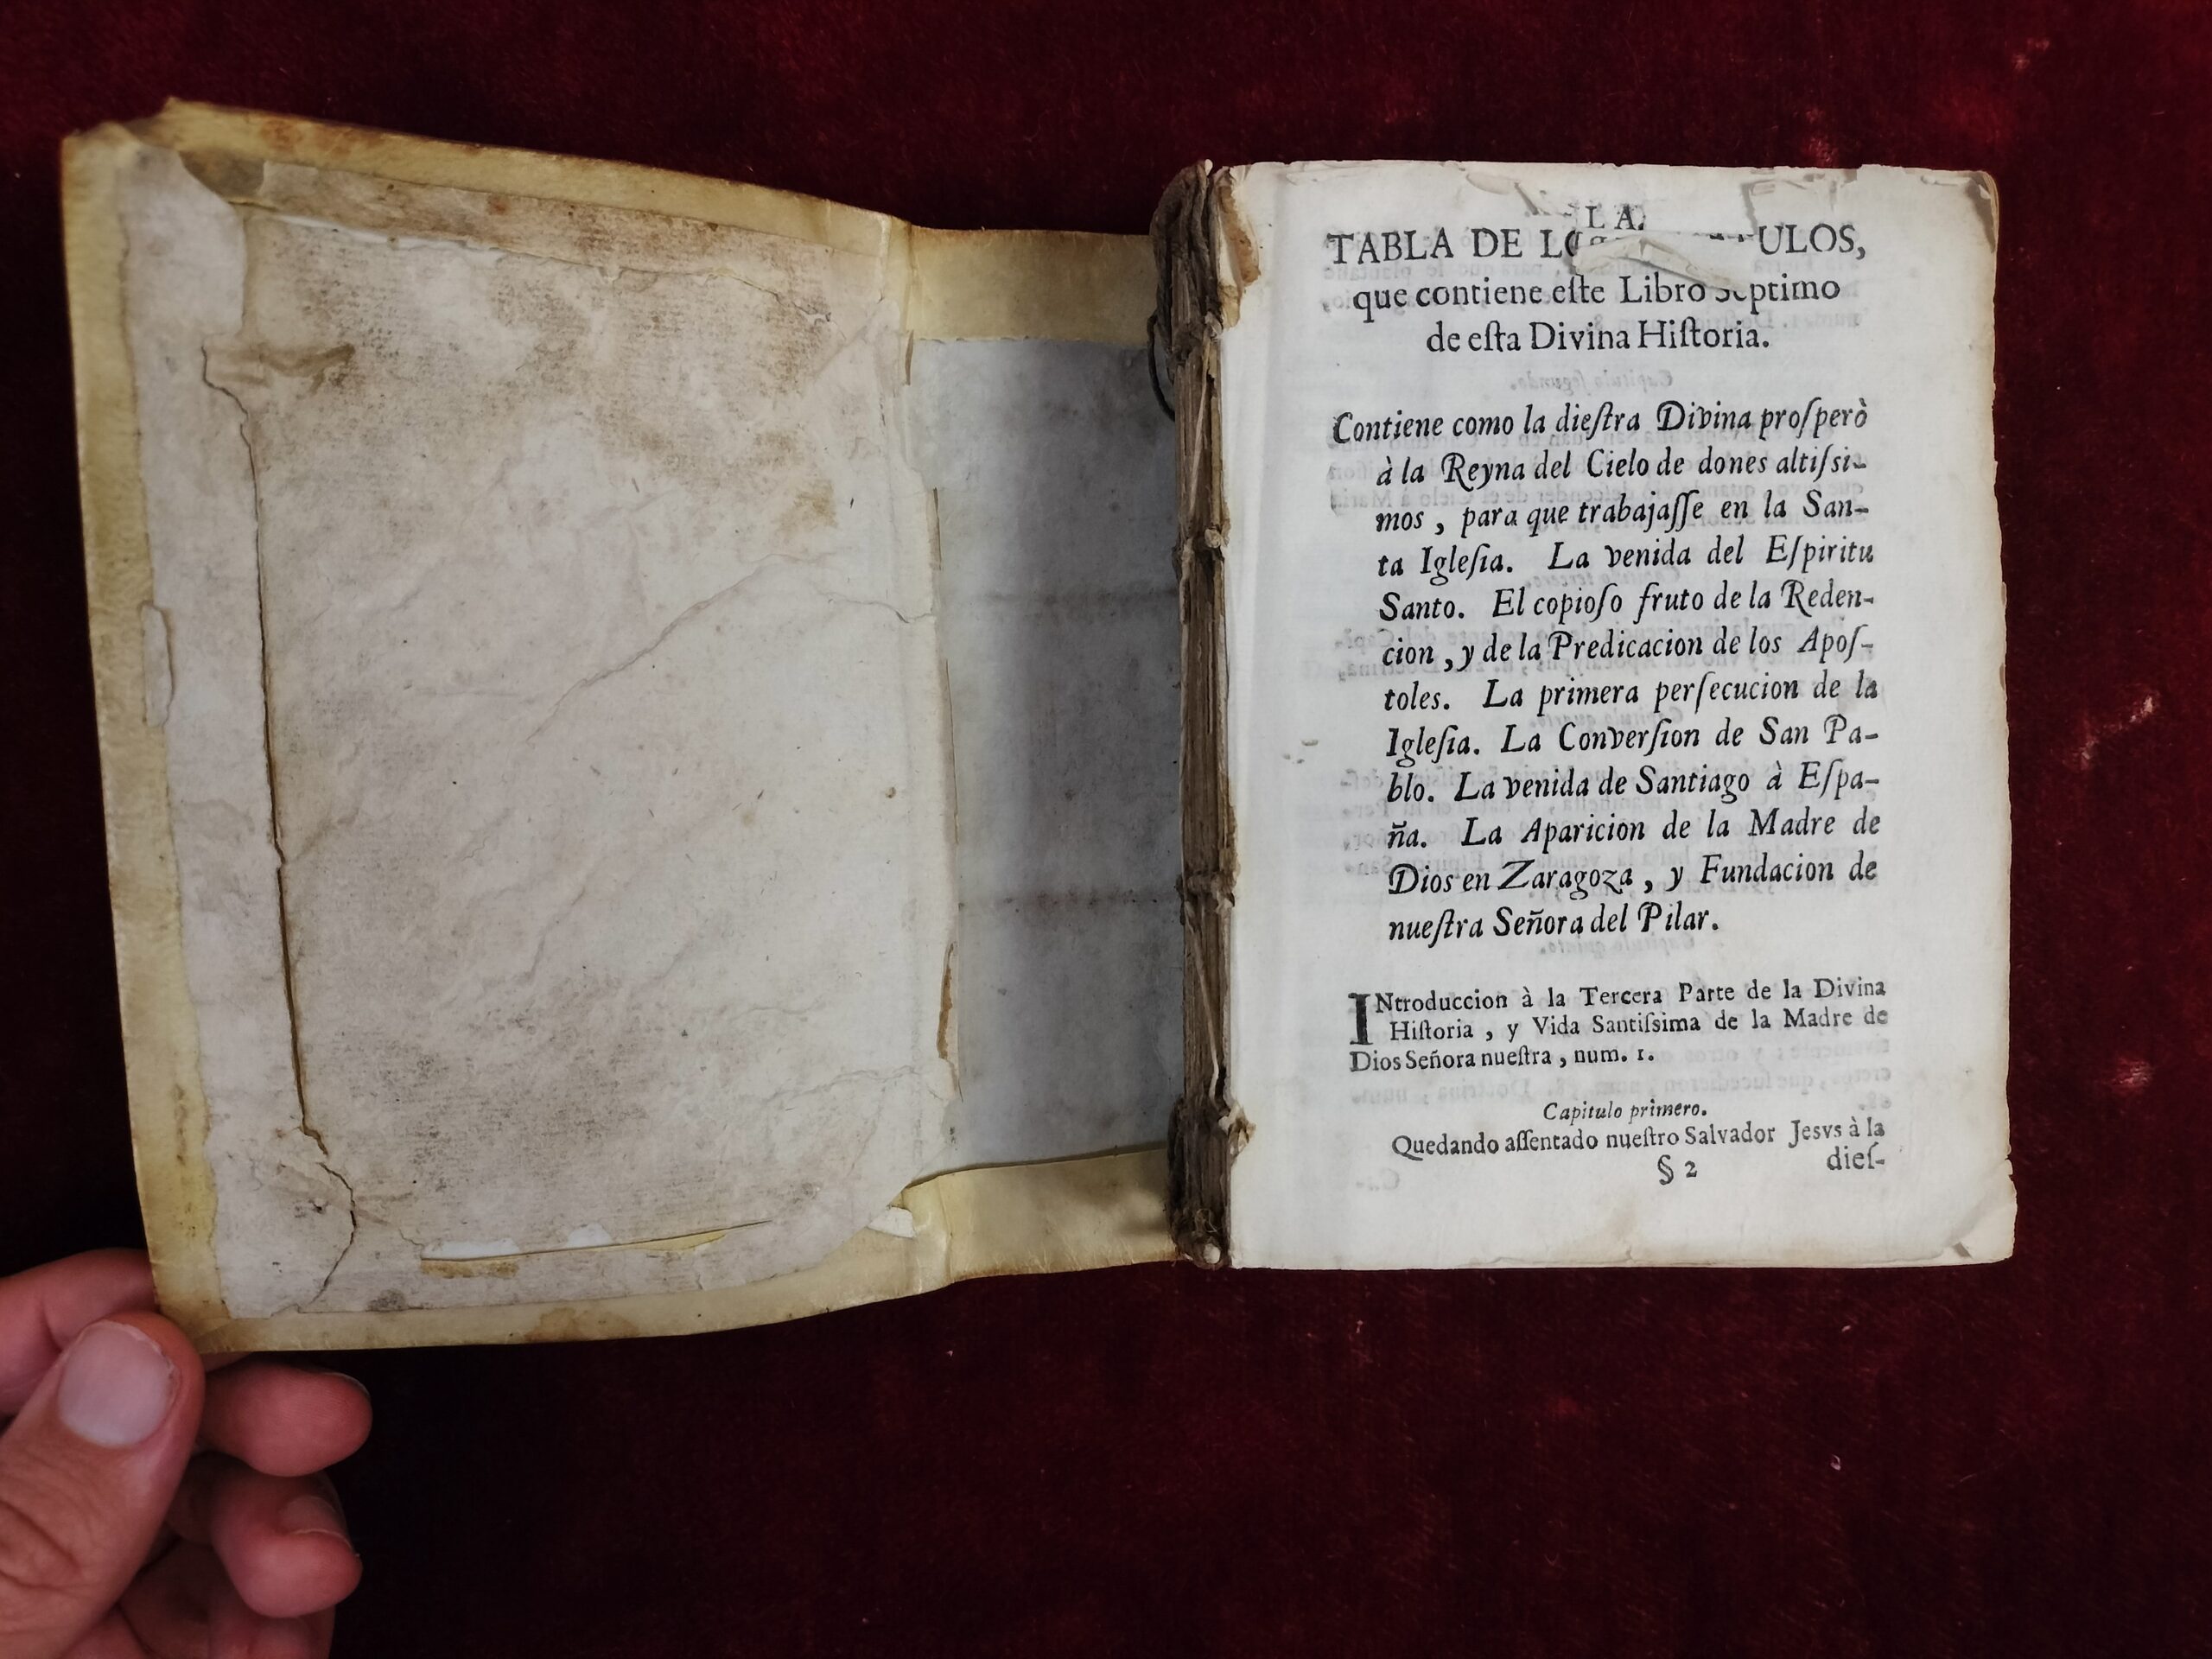 LA
TABLA DE LO ULOS,
que contiene eſte Libro Septimo
de eſta Divina Hiſtoria.
Contiene como la dieſtra Divina proſperò
à la Reyna del Cielo de dones altiſsi-
mos, para que trabajaſſe en la San-
ta Igleſia. La venida del Eſpiritu
Santo. El copioſo fruto de la Reden-
cion, y de la Predicacion de los Apoſ-
toles. La primera perſecucion de la
Igleſia. La Converſion de San Pa-
blo. La venida de Santiago à Eſpa-
ña. La Aparicion de la Madre de
Dios en Zaragoza, y Fundacion de
nueſtra Señora del Pilar.
INtroduccion à la Tercera Parte de la Divina
Hiſtoria, y Vida Santiſsima de la Madre de
Dios Señora nueſtra, num. 1.
Capitulo primero.
Quedando aſſentado nueſtro Salvador Jesvs à la
§ 2 dieſ-